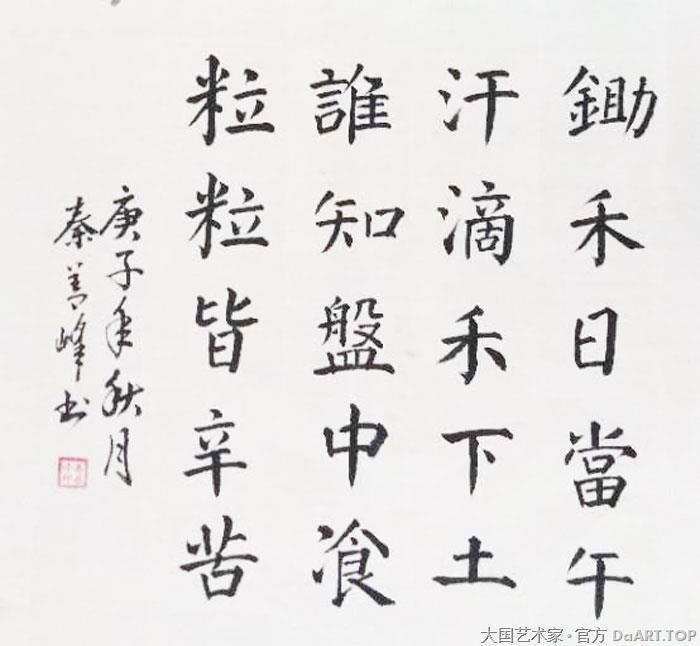 鋤禾日當午
汗滴禾下土
誰知盤中飡
粒粒皆辛苦
庚子年秋月
秦善峰书
大国艺术家·官方 DaART.TOP